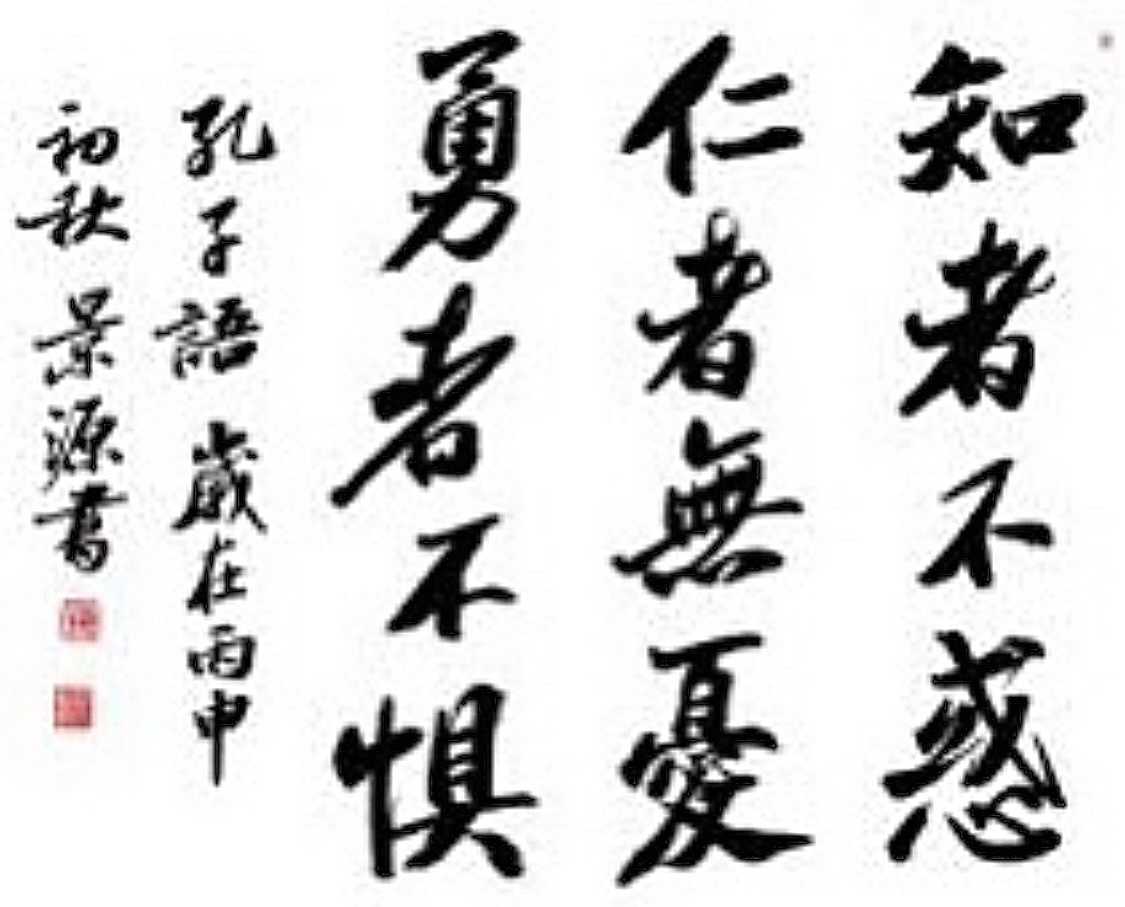 知者不惑
仁者無憂
勇者不惧
孔子語 歲在丙申
初秋 景源書